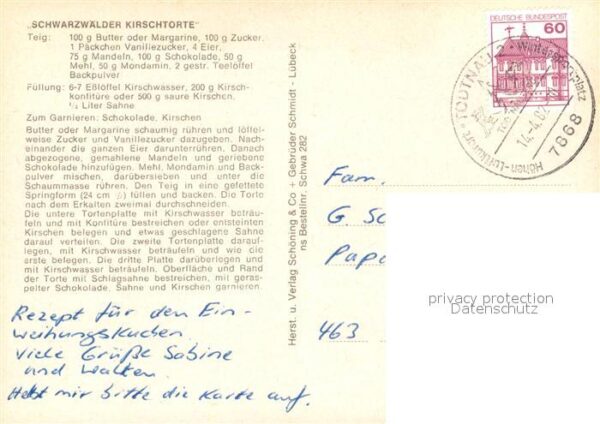 „SCHWARZWÄLDER KIRSCHTORTE"
Teig: 100 g Butter oder Margarine, 100 g Zucker,
1 Päckchen Vanillezucker, 4 Eier,
75 g Mandeln, 100 g Schokolade, 50 g
Mehl, 50 g Mondamin, 2 gestr. Teelöffel
Backpulver
Füllung: 6-7 Eßlöffel Kirschwasser, 200 g Kirsch-
konfitüre oder 500 g saure Kirschen,
½ Liter Sahne
Zum Garnieren: Schokolade, Kirschen
Butter oder Margarine schaumig rühren und löffel-
weise Zucker und Vanillezucker dazugeben. Nach-
einander die ganzen Eier darunterrühren. Danach
abgezogene, gemahlene Mandeln und geriebene
Schokolade hinzufügen. Mehl, Mondamin und Back-
pulver mischen, darübersieben und unter die
Schaummasse rühren. Den Teig in eine gefettete
Springform (24 cm ∅) füllen und backen. Die Torte
nach dem Erkalten zweimal durchschneiden.
Die untere Tortenplatte mit Kirschwasser beträu-
feln und mit Konfitüre bestreichen oder entsteinten
Kirschen belegen und etwas geschlagene Sahne
darauf verteilen. Die zweite Tortenplatte darauf-
legen, mit Kirschwasser beträufeln und wie die
erste belegen. Die dritte Platte darüberlegen und
mit Kirschwasser beträufeln. Oberfläche und Rand
der Torte mit Schlagsahne bestreichen, mit geras-
pelter Schokolade, Sahne und Kirschen garnieren.
Rezept für den Ein-
weihungskuchen
Viele Grüße Sabine
und Walter.
Hebt mir bitte die Karte auf.
Herst. u. Verlag Schöning & Co + Gebrüder Schmidt - Lübeck
ns Bestellnr. Schwa 282
DEUTSCHE BUNDESPOST
60
TODTNAU 2 · Wintersportplatz
Höhen-Luftkurort
14.-4.82
7868
Fam.
G. Sc
Papa
463
privacy protection
Datenschutz